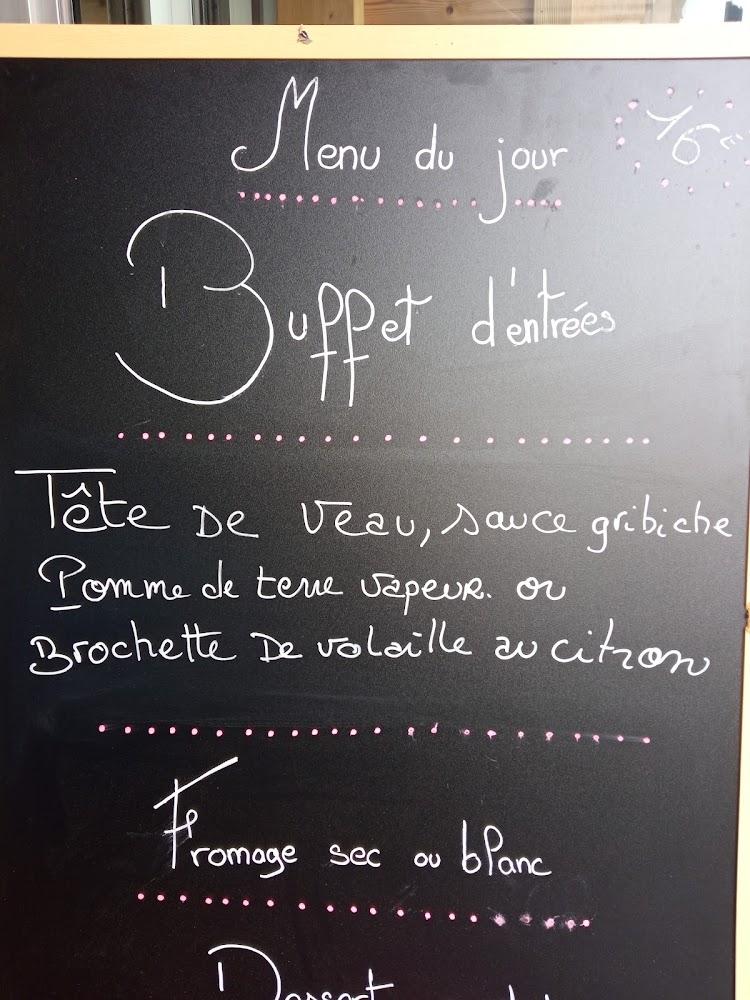 Menu du jour
16€
Buffet d'entrées
Tête De Veau, sauce gribiche
Pomme de terre vapeur. ou
Brochette De volaille au citron
Fromage sec ou blanc
Dessert